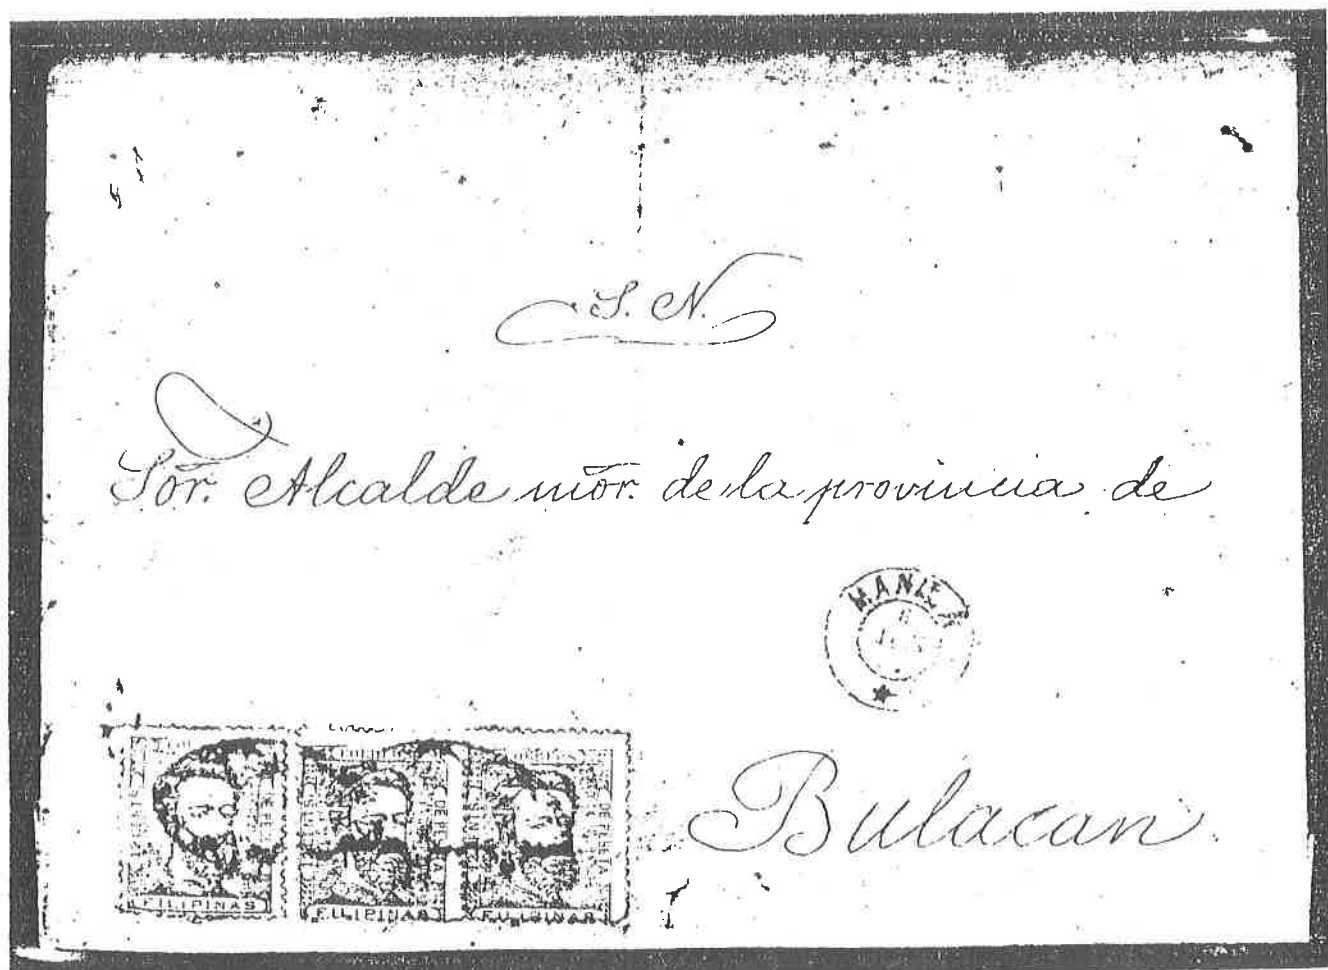 S. N.
Sor. Alcalde mor. de la provincia de
MANILA
Bulacan
FILIPINAS
FILIPINAS
FILIPINAS